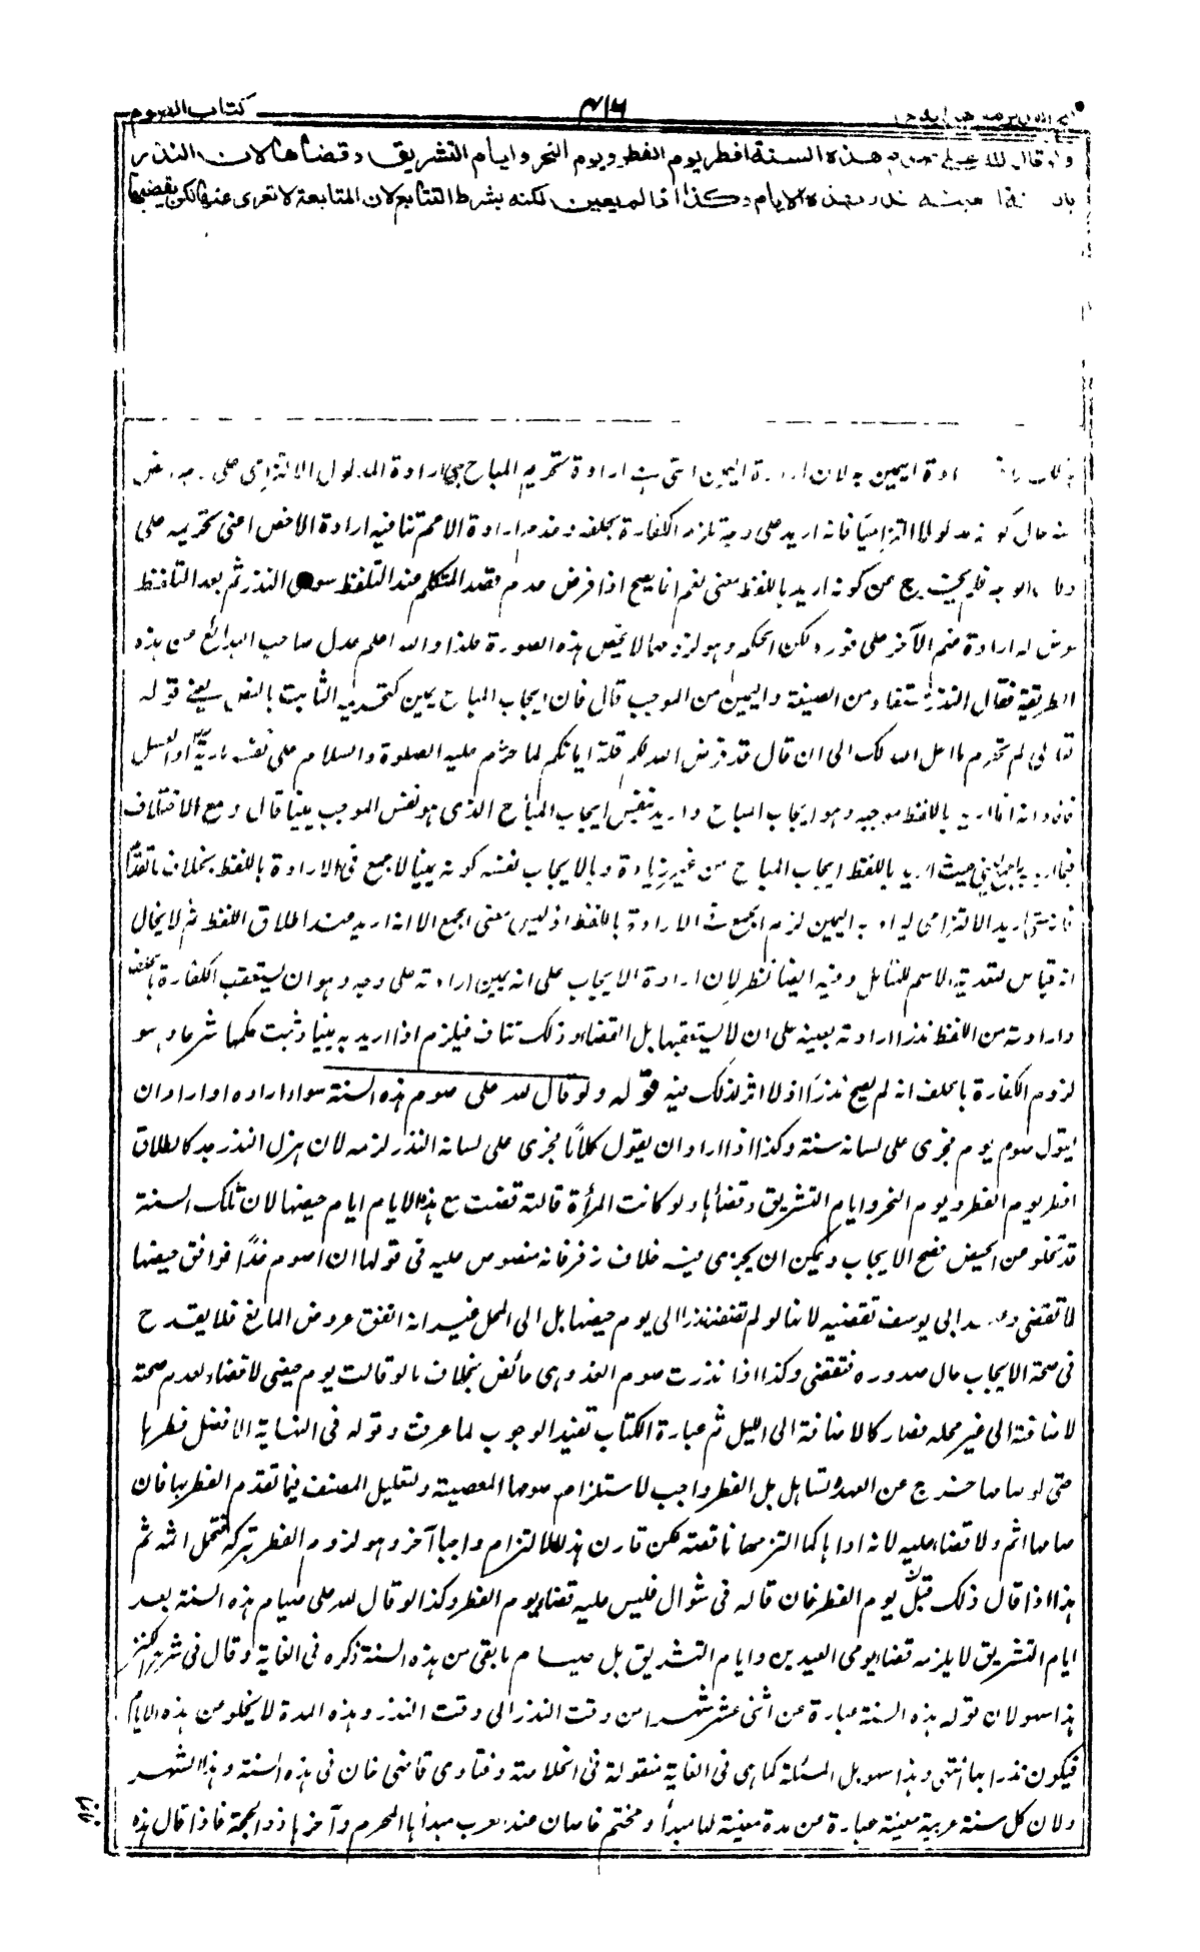 كتاب الصوم
٤١٦
ولو قال لله علي صوم هذه السنة افطر يوم الفطر و يوم النحر و ايام التشريق و قضاها لان النذر
نذر بهذه الايام وكذا اذا لم يعين لكنه بشرط التتابع لان المتابعة لا تعرى عنها لكن يقضيها
ارادة اليمين به لان ارادة اليمين التي هي ارادة تحريم المباح هي ارادة المدلول الالتزامي على
حال كونه مدلولا التزاميا فانه اريد على وجه تلزم الكفارة بخلفه وعدم ارادة الاعم تنافيه ارادة الاخص اعنى تحريمه على
الوجه فلم يخرج عن كونه اريد باللفظ معنى نعم انما يصح اذا فرض عدم قصد المتكلم عند التلفظ سوى النذر ثم بعد التلفظ
عرض له ارادة ضم الآخر على فوره لكن الحكم وهو لزومهما لا يخص هذه الصورة فلذا والله اعلم عدل صاحب البدائع عن هذه
الطريقة فقال النذر مستفاد من الصيغة واليمين من الموجب قال فان ايجاب المباح يمين كتحريمه الثابت بالنص يعنى قوله
تعالى لم تحرم ما احل الله لك الى ان قال قد فرض الله لكم تحلة ايمانكم لما حرم عليه الصلوة والسلام على نفسه مارية او العسل
فافاد انه انما اريد باللفظ موجبه وهو ايجاب المباح واريد بنفس ايجاب المباح الذى هو نفس الموجب يمينا قال ومع الاختلاف
فيما اريد به لا جمع يعنى حيث اريد باللفظ ايجاب المباح من غير زيادة وبالايجاب نفسه كونه يمينا لا جمع فى الارادة باللفظ بخلاف ما تقدم
فانه متى اريد الالتزامى ليراد به اليمين لزم الجمع فى الارادة باللفظ اذ ليس معنى الجمع الا انه اريد عند اطلاق اللفظ ثم لا يخال
انه قياس لتعدية الاسم للتأمل وفيه ايضا نظر لان ارادة الايجاب على انه يمين ارادته على وجه وهو ان يستعقب الكفارة بالخلف
وارادته من اللفظ نذرا ارادته بعينه على ان لا يستعقبها بل القضاء وذلك تناف فيلزم اذا اريد به يمينا وثبت حكمها شرعا وهو
لزوم الكفارة بالخلف انه لم يصح نذرا اذ لا اثر لذلك فيه قوله ولو قال لله على صوم هذه السنة سواء اراده او اراد ان
يقول صوم يوم فجرى على لسانه سنة وكذا اذا اراد ان يقول كلاما فجرى على لسانه النذر لزمه لان هزل النذر جد كالطلاق
افطر يوم الفطر ويوم النحر وايام التشريق وقضاها ولو كانت المرأة قالته قضت مع هذه الايام ايام حيضها لان تلك السنة
قد تخلو من الحيض فصح الايجاب ويمكن ان يجرى فيه خلاف زفر فانه منصوص عليه فى قولها ان اصوم غدا فوافق حيضها
لا تقضى وعند ابى يوسف تقضيه لانها لم تضف نذرا الى يوم حيضها بل الى المحل غير انه اتفق عروض المانع فلا يقدح
فى صحة الايجاب حال صدوره فتقضى وكذا اذا نذرت صوم الغد وهى حائض بخلاف ما لو قالت يوم حيضى لا قضاء لعدم صحته
لاضافته الى غير محله فصار كالاضافة الى الليل ثم عبارة الكتاب تفيد الوجوب لما عرفت وقوله فى النهاية الافضل فطرها
حتى لو صامها خرج عن العهدة تساهل بل الفطر واجب لاستلزام صومها المعصية ولتعليل المصنف فيما تقدم الفطر بها فان
صامها اثم ولا قضاء عليه لانه اداها كما التزمها ناقصة لكن قارن هذا الالتزام واجبا آخر وهو لزوم الفطر تركه فتحمل اثمه ثم
هذا اذا قال ذلك قبل يوم الفطر فان قاله فى شوال فليس عليه قضاء يوم الفطر وكذا لو قال لله على صيام هذه السنة بعد
ايام التشريق لا يلزمه قضاء يومى العيدين وايام التشريق بل صيام ما بقى من هذه السنة ذكره فى الغاية وقال فى شرح الكنز
هذا سهو لان قوله هذه السنة عبارة عن اثنى عشر شهرا من وقت النذر الى وقت النذر وهذه المدة لا يخلو عن هذه الايام
فيكون نذرا بها انتهى وهذا سهو بل المسئلة كما هى فى الغاية منقولة فى الخلاصة وفتاوى قاضى خان فى هذه السنة وهذا الشهر
ولان كل سنة عربية معينة عبارة عن مدة معينة لها مبدأ ومختتم خاصان عند العرب مبدأها المحرم وآخرها ذو الحجة فاذا قال هذه